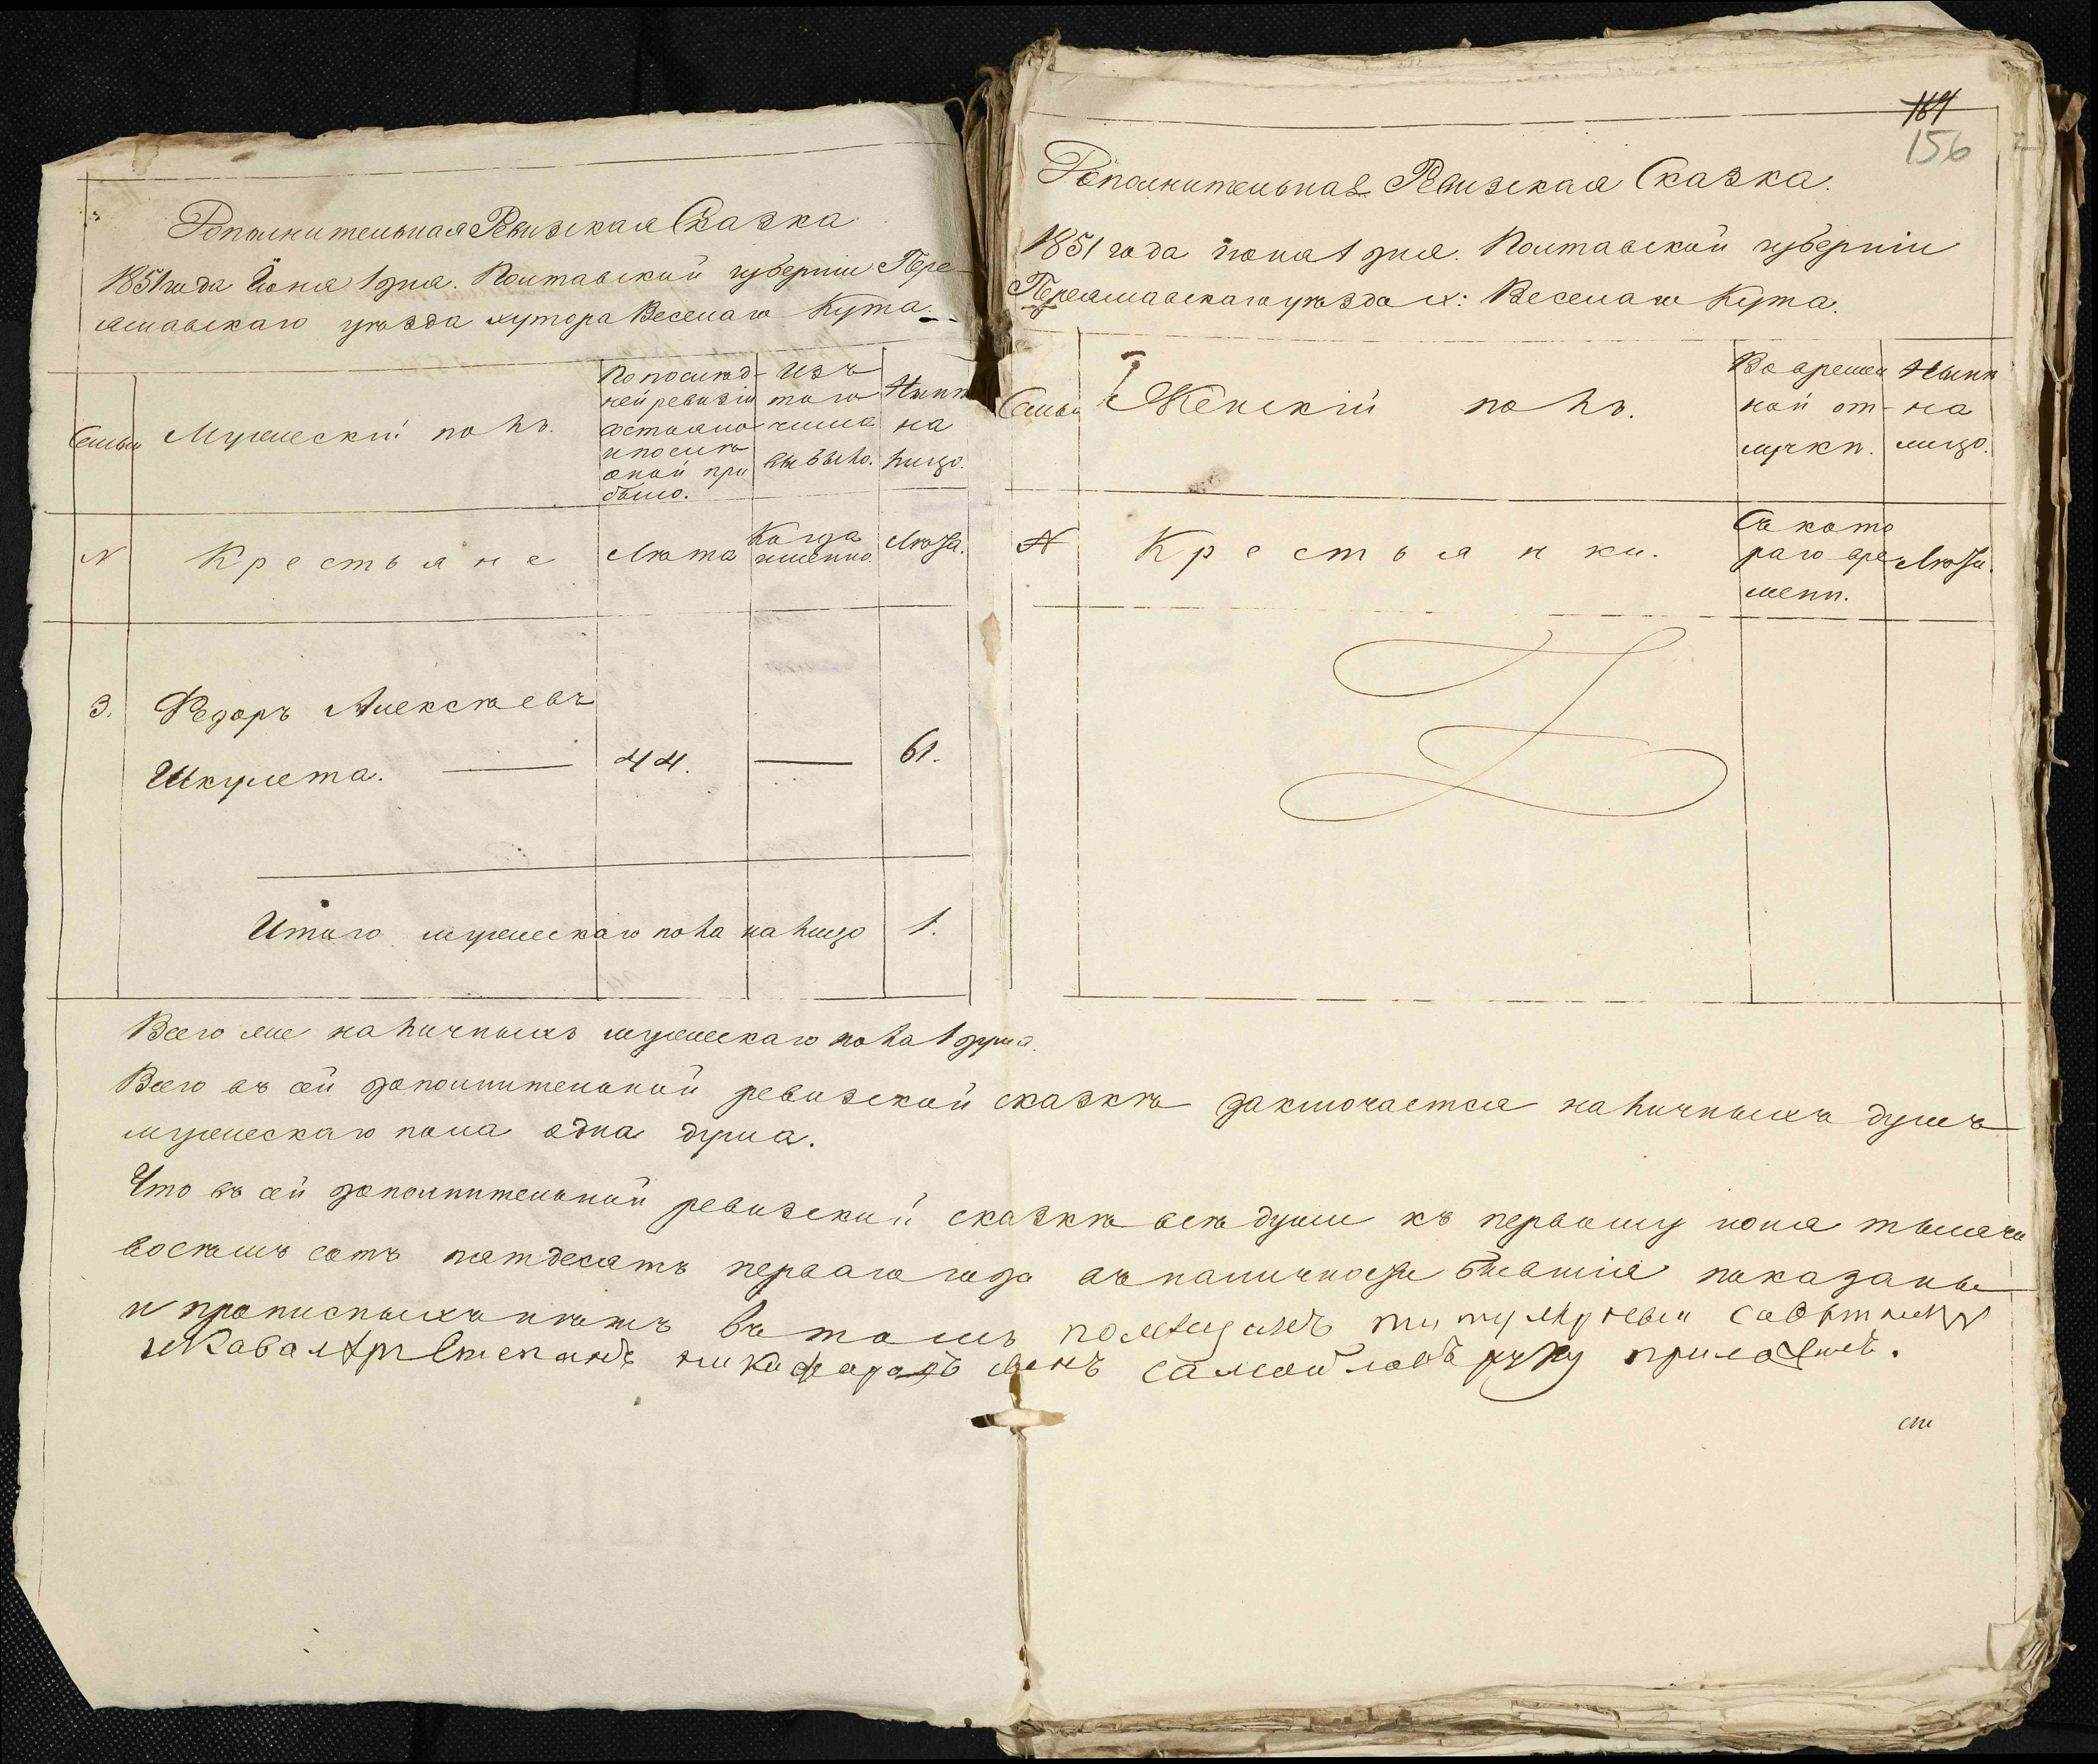 Дополнительная Ревизская Сказка
1851 года Июня 1 дня. Полтавской губернии Пере-
яславскаго уезда хутора Веселаго Кута.
Семьи
Мужеский полъ.
По послѣд-
ней ревизіи
состояло
и послѣ
оной при
было.
Изъ
того
числа
выбыло.
Нынѣ
на
лицо.
N
Крестьяне
Лѣта
Когда
именно.
Лѣта.
3. Федоръ Алексѣевъ
Шкулета. — 44. — 61.
Итого мужескаго пола на лицо 1.
184
156
Дополнительная Ревизская Сказка.
1851 года июня 1 дня. Полтавской губерніи
Переяславскаго уѣзда х: Веселаго Кута.
Семьи
Женскій полъ.
Во времен
ной от-
лучкѣ.
Нынѣ
на
лицо.
N
Крестьянки.
Съ кото
раго вре
мени.
Лѣта.
Всего же наличныхъ мужескаго пола 1 душа.
Всего въ сей дополнительной ревизской сказкѣ заключается наличныхъ душъ
мужескаго пола одна душа.
Что въ сей дополнительной ревизской сказкѣ всѣ души къ первому июня тысяча
восемь сотъ пятдесятъ перваго года въ наличности бывшія показаны
и прописныхъ нѣтъ въ томъ помещикъ титулярный савѣтникъ
и Кавалѣръ Степанъ никифоровъ сынъ самойловъ руку приложилъ.